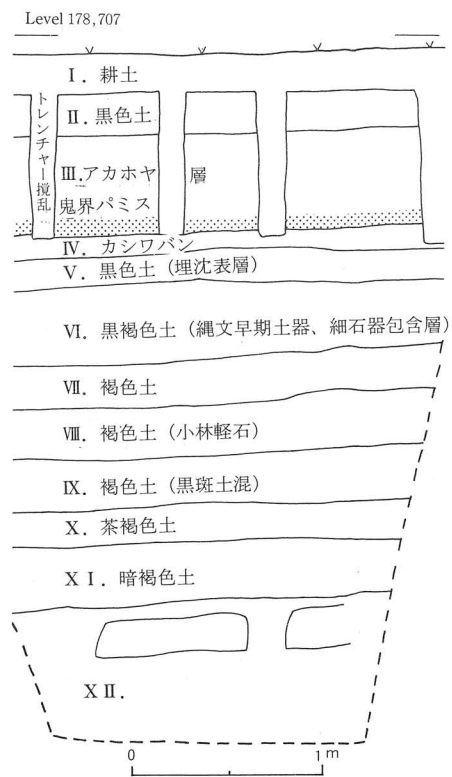 Level 178,707
Ⅰ. 耕土
トレンチャー攪乱
Ⅱ. 黒色土
Ⅲ. アカホヤ 層
鬼界パミス
Ⅳ. カシワバン
Ⅴ. 黒色土（埋沈表層）
Ⅵ. 黒褐色土（縄文早期土器、細石器包含層）
Ⅶ. 褐色土
Ⅷ. 褐色土（小林軽石）
Ⅸ. 褐色土（黒斑土混）
Ⅹ. 茶褐色土
ⅩⅠ. 暗褐色土
ⅩⅡ.
0 1 m